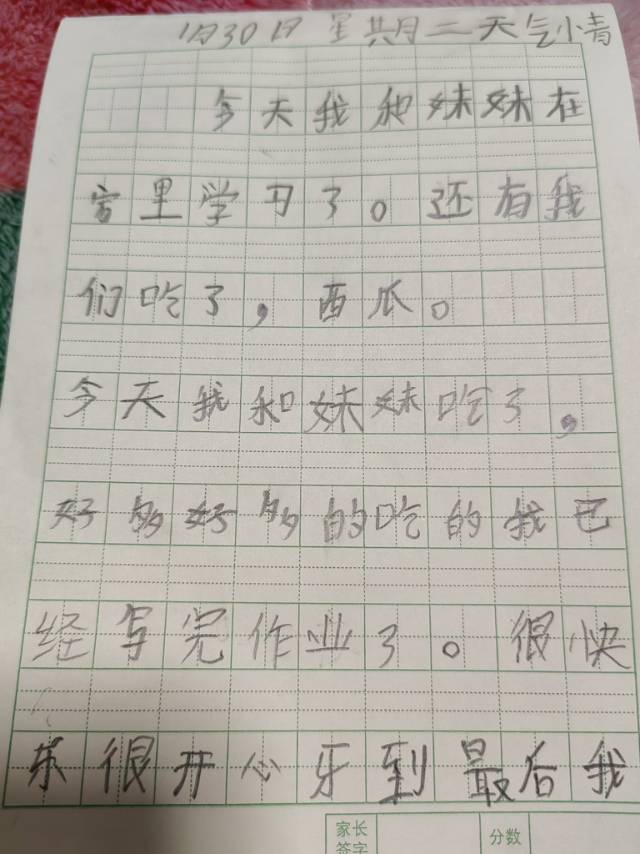 1月30日 星期二 天气小青
今天我和妹妹在
家里学习了。还有我
们吃了,西瓜。
今天我和妹妹吃了,
好多好多的吃的我已
经写完作业了。很快
乐很开心牙到最后我
家长
签字
分数